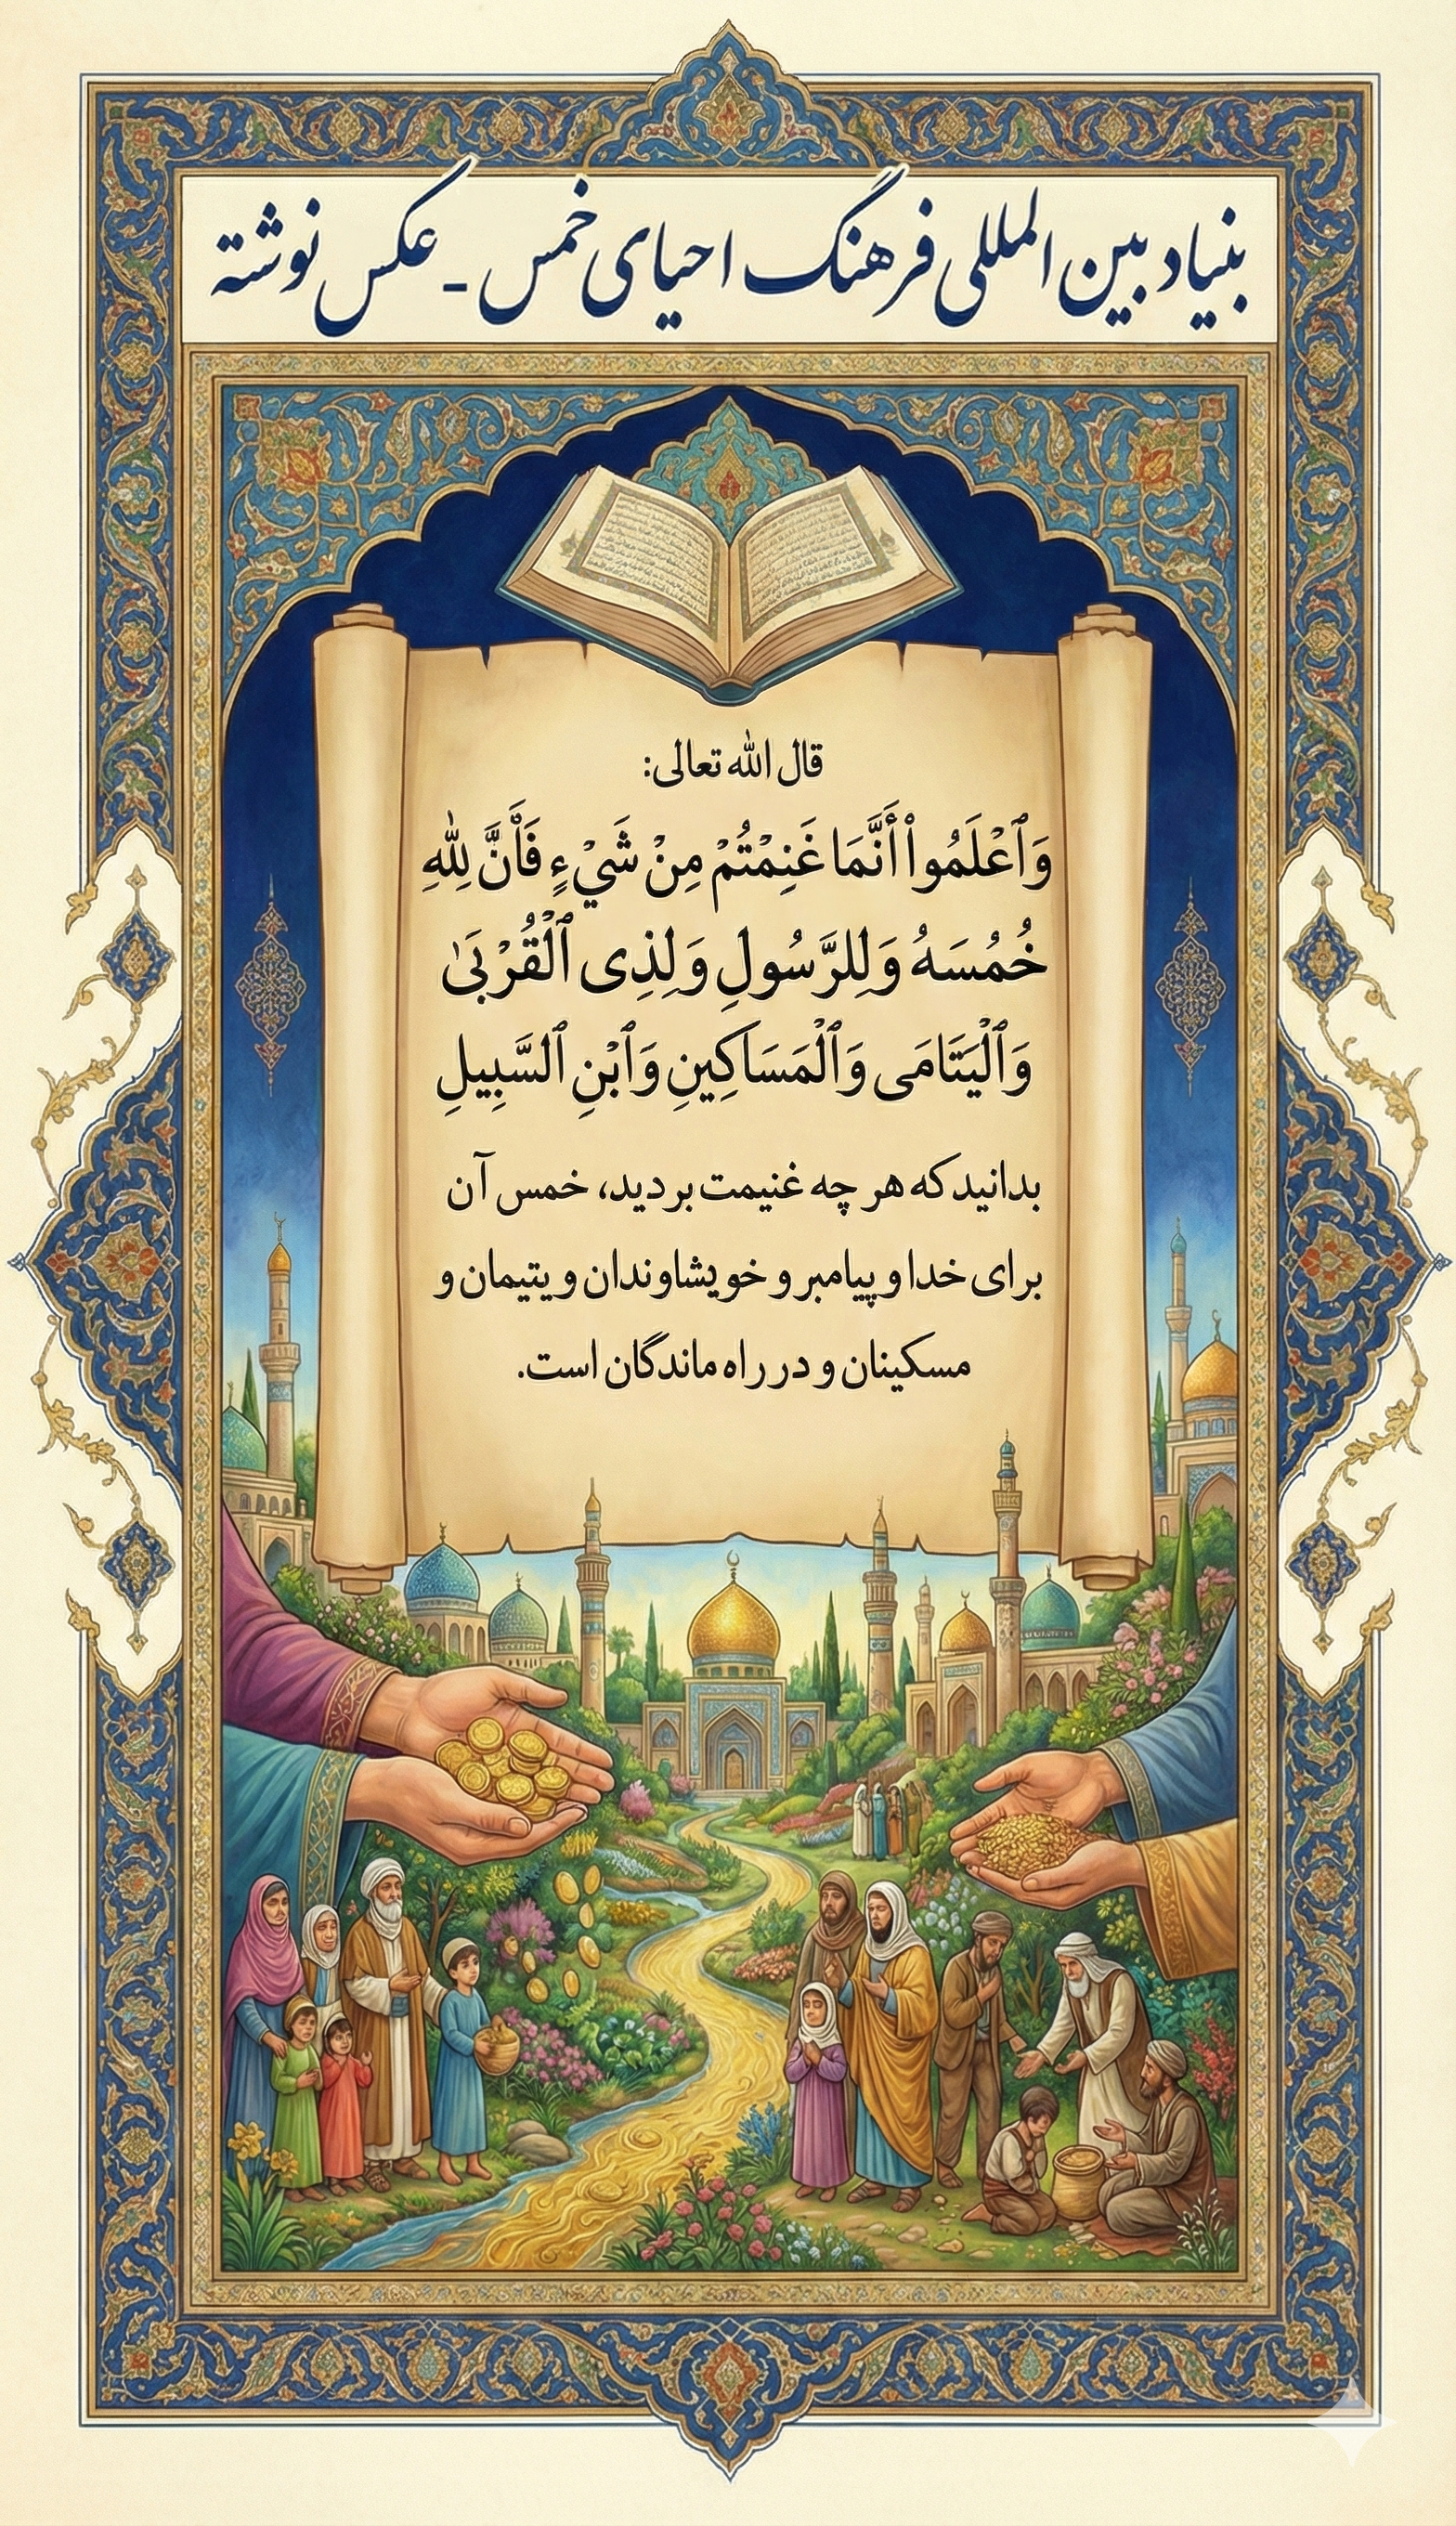 بنیاد بین المللی فرهنگ احیای خمس - عکس نوشته
قال الله تعالی:
وَٱعْلَمُوا۟ أَنَّمَا غَنِمْتُمْ مِنْ شَيْءٍ فَأَنَّ لِلّٰهِ
خُمُسَهُ وَلِلرَّسُولِ وَلِذِی ٱلْقُرْبَىٰ
وَٱلْيَتَامَى وَٱلْمَسَاكِينِ وَٱبْنِ ٱلسَّبِيلِ
بدانید که هر چه غنیمت بردید، خمس آن
برای خدا و پیامبر و خویشاوندان و یتیمان و
مسکینان و در راه ماندگان است.